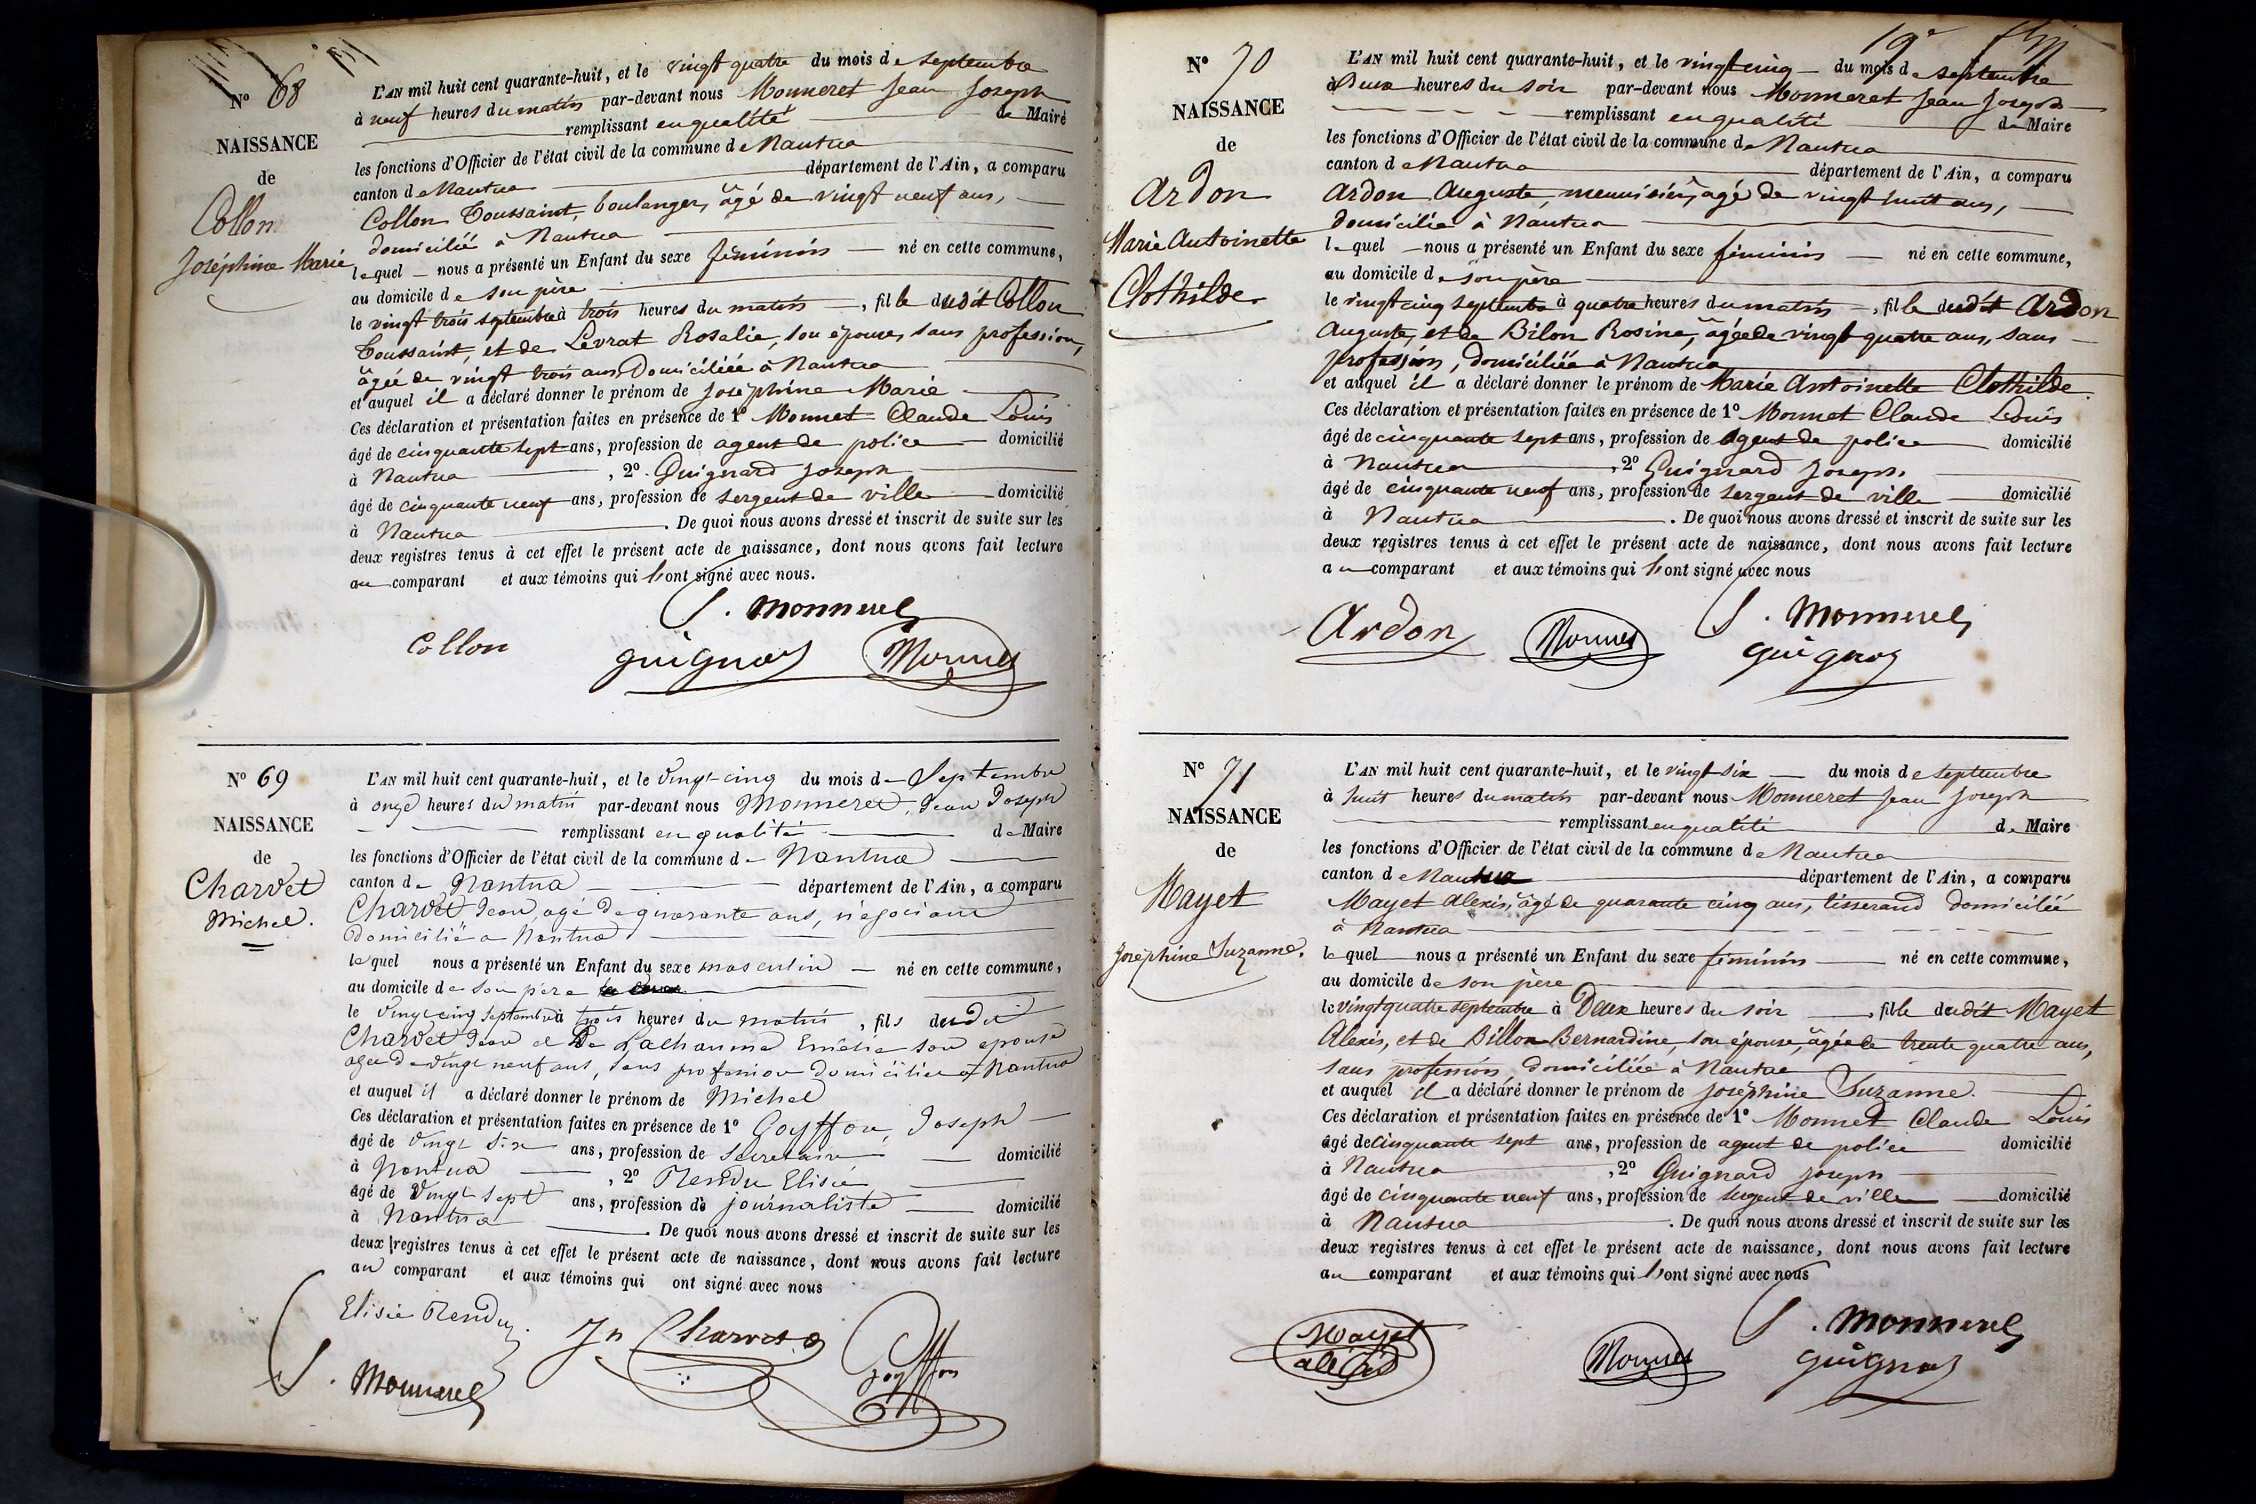 N° 68
NAISSANCE
de
Collon
Joséphine Marie
L'AN mil huit cent quarante-huit, et le vingt quatre du mois de septembre
à neuf heures du matin par-devant nous Monneret Jean Joseph
remplissant en qualité de Maire
les fonctions d'Officier de l'état civil de la commune de Nantua
canton de Nantua département de l'Ain, a comparu
Collon Toussaint, boulanger, âgé de vingt neuf ans,
domicilié à Nantua
lequel nous a présenté un Enfant du sexe féminin né en cette commune,
au domicile de son père
le vingt trois septembre à trois heures du matin, fille dudit Collon
Toussaint, et de Levrat Rosalie, son épouse, sans profession,
âgée de vingt trois ans Domiciliée à Nantua
et auquel il a déclaré donner le prénom de Joséphine Marie
Ces déclaration et présentation faites en présence de 1° Monnet Claude Louis
âgé de cinquante sept ans, profession de agent de police domicilié
à Nantua, 2° Guignard Joseph
âgé de cinquante neuf ans, profession de sergent de ville domicilié
à Nantua. De quoi nous avons dressé et inscrit de suite sur les
deux registres tenus à cet effet le présent acte de naissance, dont nous avons fait lecture
au comparant et aux témoins qui ont signé avec nous.
J. Monneret
Collon guignard Monnet
N° 69
NAISSANCE
de
Charvet
Michel.
L'AN mil huit cent quarante-huit, et le vingt-cinq du mois de Septembre
à onze heures du matin par-devant nous Monneret, Jean Joseph
remplissant en qualité de Maire
les fonctions d'Officier de l'état civil de la commune de Nantua
canton de Nantua département de l'Ain, a comparu
Charvet Jean, agé de quarante ans, négociant
domicilié à Nantua
lequel nous a présenté un Enfant du sexe masculin né en cette commune,
au domicile de son père
le vingt cinq septembre à trois heures du matin, fils dudit
Charvet Jean et De Lachaume Emélie son épouse
agée de vingt neuf ans, sans profession domiciliée à Nantua
et auquel il a déclaré donner le prénom de Michel
Ces déclaration et présentation faites en présence de 1° Goyffon, Joseph
âgé de vingt six ans, profession de secretaire domicilié
à Nantua, 2° Rendu Elisié
âgé de vingt sept ans, profession de journaliste domicilié
à Nantua. De quoi nous avons dressé et inscrit de suite sur les
deux registres tenus à cet effet le présent acte de naissance, dont nous avons fait lecture
au comparant et aux témoins qui ont signé avec nous
Elisié Rendu
Jn Charvet
Goyffon
J. Monneret
19e
N° 70
NAISSANCE
de
Ardon
Marie Antoinette
Clothilde
L'AN mil huit cent quarante-huit, et le vingt cinq du mois de septembre
à Deux heures du soir par-devant nous Monneret Jean Joseph
remplissant en qualité de Maire
les fonctions d'Officier de l'état civil de la commune de Nantua
canton de Nantua département de l'Ain, a comparu
Ardon Auguste, menuisier, agé de vingt huit ans,
domicilié à Nantua
lequel nous a présenté un Enfant du sexe féminin né en cette commune,
au domicile de son père
le vingt cinq septembre à quatre heures du matin, fille dudit Ardon
Auguste, et de Bilon Rosine, âgée de vingt quatre ans, sans
profession, domiciliée à Nantua
et auquel il a déclaré donner le prénom de Marie Antoinette Clothilde.
Ces déclaration et présentation faites en présence de 1° Monnet Claude Louis
âgé de cinquante sept ans, profession de agent de police domicilié
à Nantua, 2° Guignard Joseph.
âgé de cinquante neuf ans, profession de sergent de ville domicilié
à Nantua. De quoi nous avons dressé et inscrit de suite sur les
deux registres tenus à cet effet le présent acte de naissance, dont nous avons fait lecture
au comparant et aux témoins qui ont signé avec nous
Ardon Monnet J. Monneret
guignard
N° 71
NAISSANCE
de
Mayet
Joséphine Suzanne.
L'AN mil huit cent quarante-huit, et le vingt-six du mois de septembre
à huit heures du matin par-devant nous Monneret Jean Joseph
remplissant en qualité de Maire
les fonctions d'Officier de l'état civil de la commune de Nantua
canton de Nantua département de l'Ain, a comparu
Mayet Alexis, âgé de quarante cinq ans, tisserand domicilié
à Nantua
lequel nous a présenté un Enfant du sexe féminin né en cette commune,
au domicile de son père
le vingt quatre septembre à Deux heures du soir, fille dudit Mayet
Alexis, et de Billon Bernardine, son épouse, âgée de trente quatre ans,
sans profession, domiciliée à Nantua
et auquel il a déclaré donner le prénom de Joséphine Suzanne.
Ces déclaration et présentation faites en présence de 1° Monnet Claude Louis
âgé de cinquante sept ans, profession de agent de police domicilié
à Nantua, 2° Guignard Joseph
âgé de cinquante neuf ans, profession de sergent de ville domicilié
à Nantua. De quoi nous avons dressé et inscrit de suite sur les
deux registres tenus à cet effet le présent acte de naissance, dont nous avons fait lecture
au comparant et aux témoins qui ont signé avec nous
Mayet J. Monneret
Monnet guignard